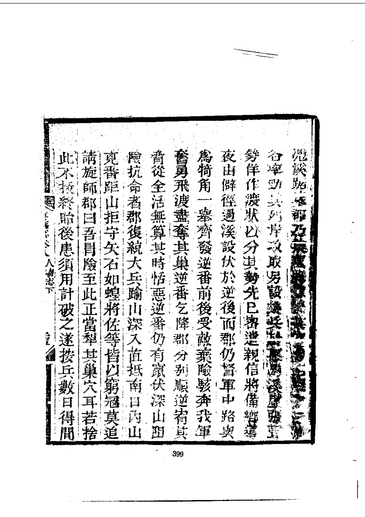 各率勁兵列岸攻取
勢佯作渡狀以分其勢先已密遣親信將備嚮導
夜由僻徑過溪設伏於逆後而郡仍督軍中路與
為犄角一舉齊發逆番前後受敵棄險駭奔我軍
奮勇飛渡盡奪其巢逆番乞降郡分別順逆宥其
脅從全活無算其時怙惡逆番仍有竄伏深山阻
險抗命者郡復統大兵踰山深入直抵南日內山
克番踞山拒守矢石如蝗將佐等皆以窮寇莫追
請旋師郡曰吾冒險至此正當犁其巢穴耳若捨
此不極終貽後患須用計破之遂按兵數日得間
399